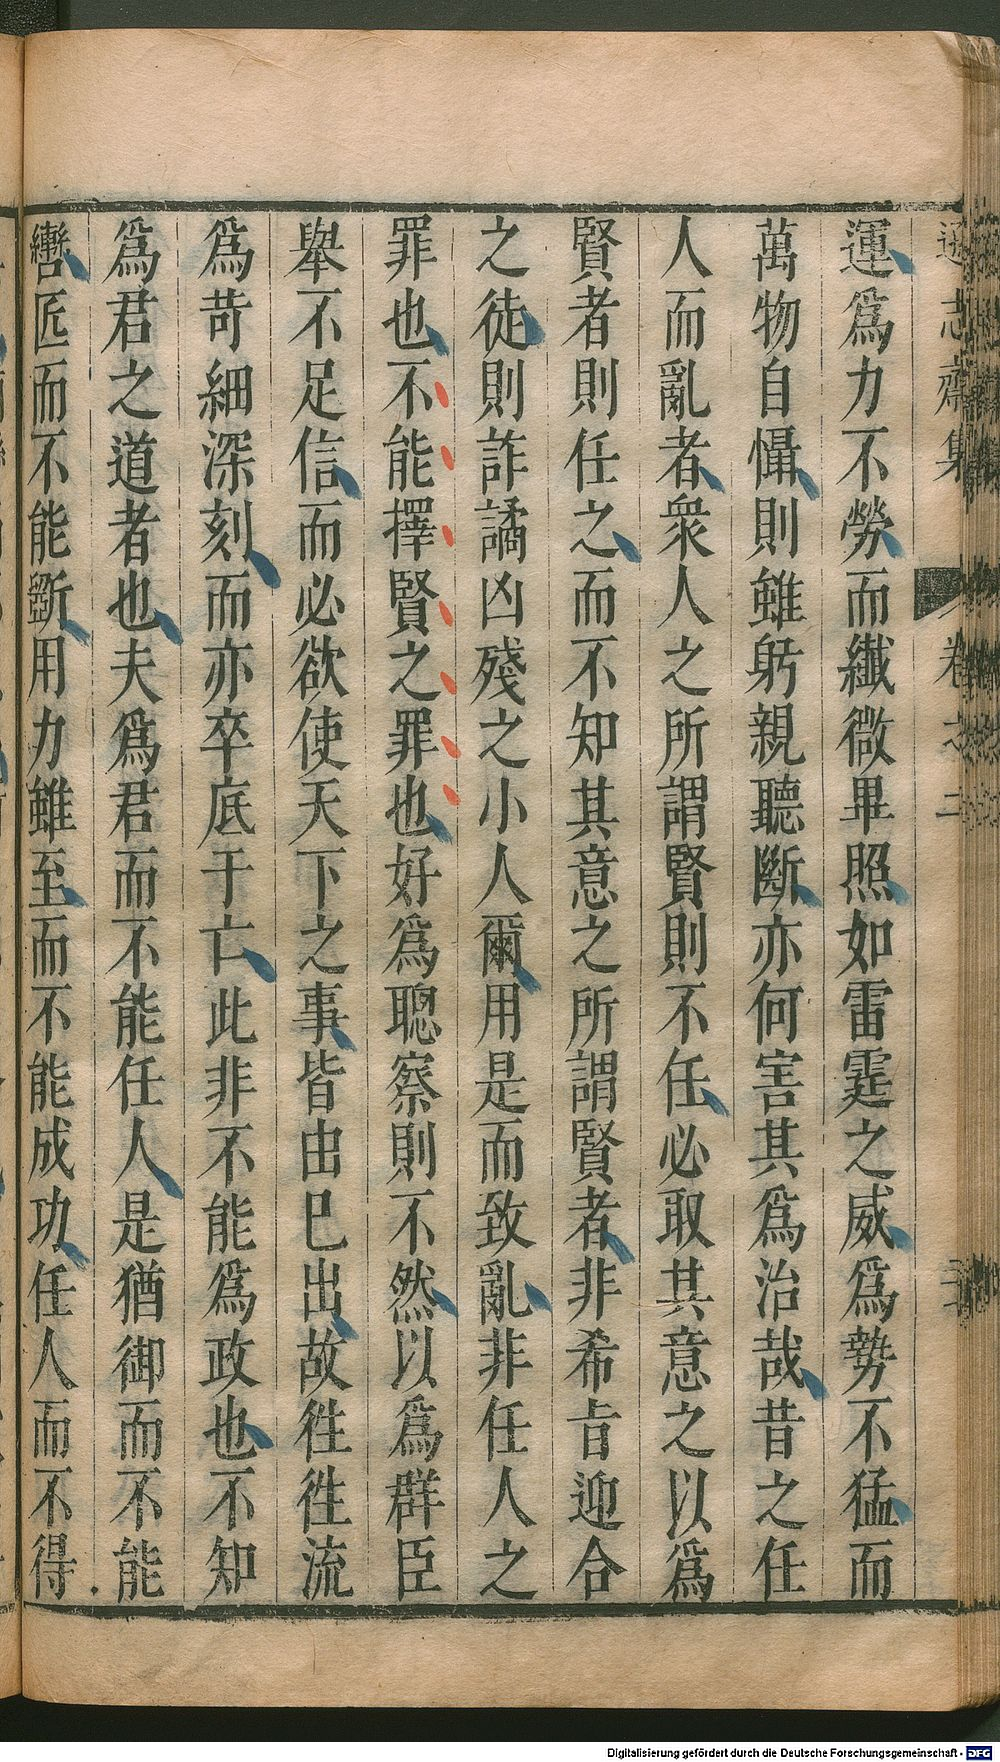 遜志齋集 卷之二 三
運爲力不勞而纖微畢照如雷霆之威爲勢不猛而
萬物自懾則雖躬親聽斷亦何害其爲治哉昔之任
人而亂者衆人之所謂賢則不任必取其意之以爲
賢者則任之而不知其意之所謂賢者非希㫖迎合
之徒則詐譎凶殘之小人爾用是而致亂非任人之
罪也不能擇賢之罪也好爲聰察則不然以爲群臣
舉不足信而必欲使天下之事皆由巳出故徃徃流
爲苛細深刻而亦卒底于亡此非不能爲政也不知
爲君之道者也夫爲君而不能任人是猶御而不能
轡匠而不能斲用力雖至而不能成功任人而不得
Digitalisierung gefördert durch die Deutsche Forschungsgemeinschaft - DFG